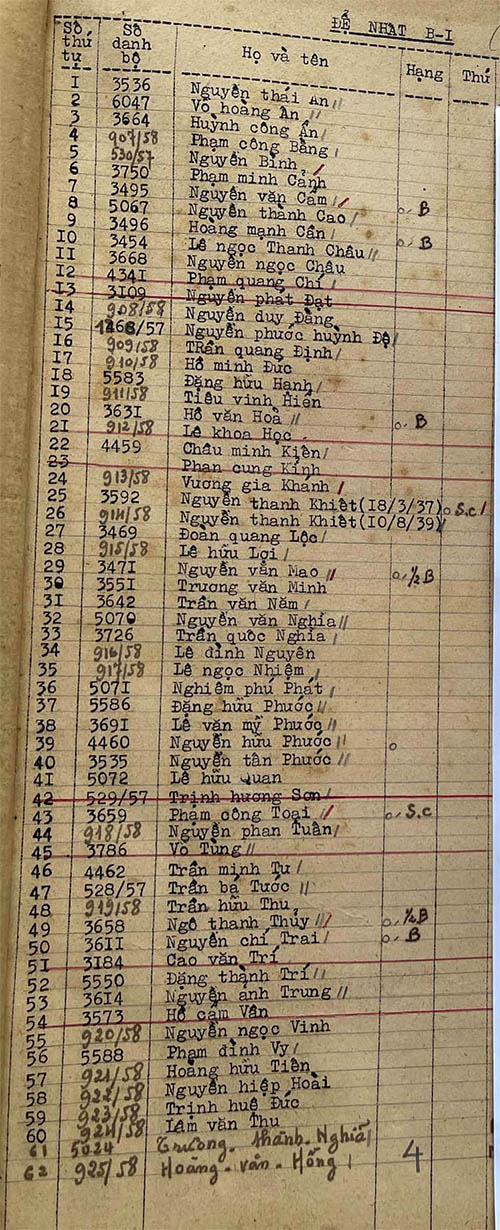 ĐỆ NHẤT B-I
Số thứ tự Số danh bộ Họ và tên Hạng Thứ
I 3536 Nguyễn thái An
2 6047 Võ hoàng Ân
3 3664 Huỳnh công Ẩn
4 907/58 Phạm công Bằng
5 530/57 Nguyễn Bỉnh
6 3750 Phạm minh Cảnh
7 3495 Nguyễn văn Cẩm
8 5067 Nguyễn thành Cao o, B
9 3496 Hoàng mạnh Cần
IO 3454 Lê ngọc Thanh Châu o, B
II 3668 Nguyễn ngọc Châu
I2 434I Phạm quang Chí
I3 3I09 Nguyễn phát Đạt
I4 908/58 Nguyễn duy Đằng
I5 1268/57 Nguyễn phước huỳnh Đệ
I6 909/58 TRần quang Định
I7 910/58 Hồ minh Đức
I8 5583 Đặng hữu Hạnh
I9 911/58 Tiêu vinh Hiển
20 363I Hồ văn Hoà
2I 912/58 Lê khoa Học o, B
22 4459 Châu minh Kiên
23 Phan cung Kính
24 913/58 Vương gia Khánh
25 3592 Nguyễn thanh Khiết(I8/3/37) o S.c
26 914/58 Nguyễn thanh Khiết(IO/8/39)
27 3469 Đoàn quang Lộc
28 915/58 Lê hữu Lợi
29 347I Nguyễn văn Mao o, ½ B
30 355I Trương văn Minh
3I 3642 Trần văn Năm
32 5070 Nguyễn văn Nghĩa
33 3726 Trần quốc Nghĩa
34 916/58 Lê đình Nguyên
35 917/58 Lê ngọc Nhiệm
36 507I Nghiêm phú Phát
37 5586 Đặng hữu Phước
38 369I Lê văn mỹ Phước
39 4460 Nguyễn hữu Phước o
40 3535 Nguyễn tấn Phước
4I 5072 Lê hữu Quan
42 529/57 Trịnh hương Sơn
43 3659 Phạm công Toại o, S.c
44 918/58 Nguyễn phan Tuấn
45 3786 Võ Tùng
46 4462 Trần minh Tư
47 528/57 Trần bá Tước
48 919/58 Trần hữu Thu
49 3658 Ngô thanh Thủy o, ½ B
50 36II Nguyễn chí Trai o, B
5I 3I84 Cao văn Trí
52 5550 Đặng thành Trí
53 36I4 Nguyễn anh Trung
54 3573 Hồ cẩm Vân
55 920/58 Nguyễn ngọc Vinh
56 5588 Phạm đình Vy
57 921/58 Hoàng hữu Tiên
58 922/58 Nguyễn hiệp Hoài
59 923/58 Trịnh huê Đức
60 924/58 Lâm văn Thu
61 5024 Trương - thành - Nghĩa
62 925/58 Hoàng - văn - Hồng 4